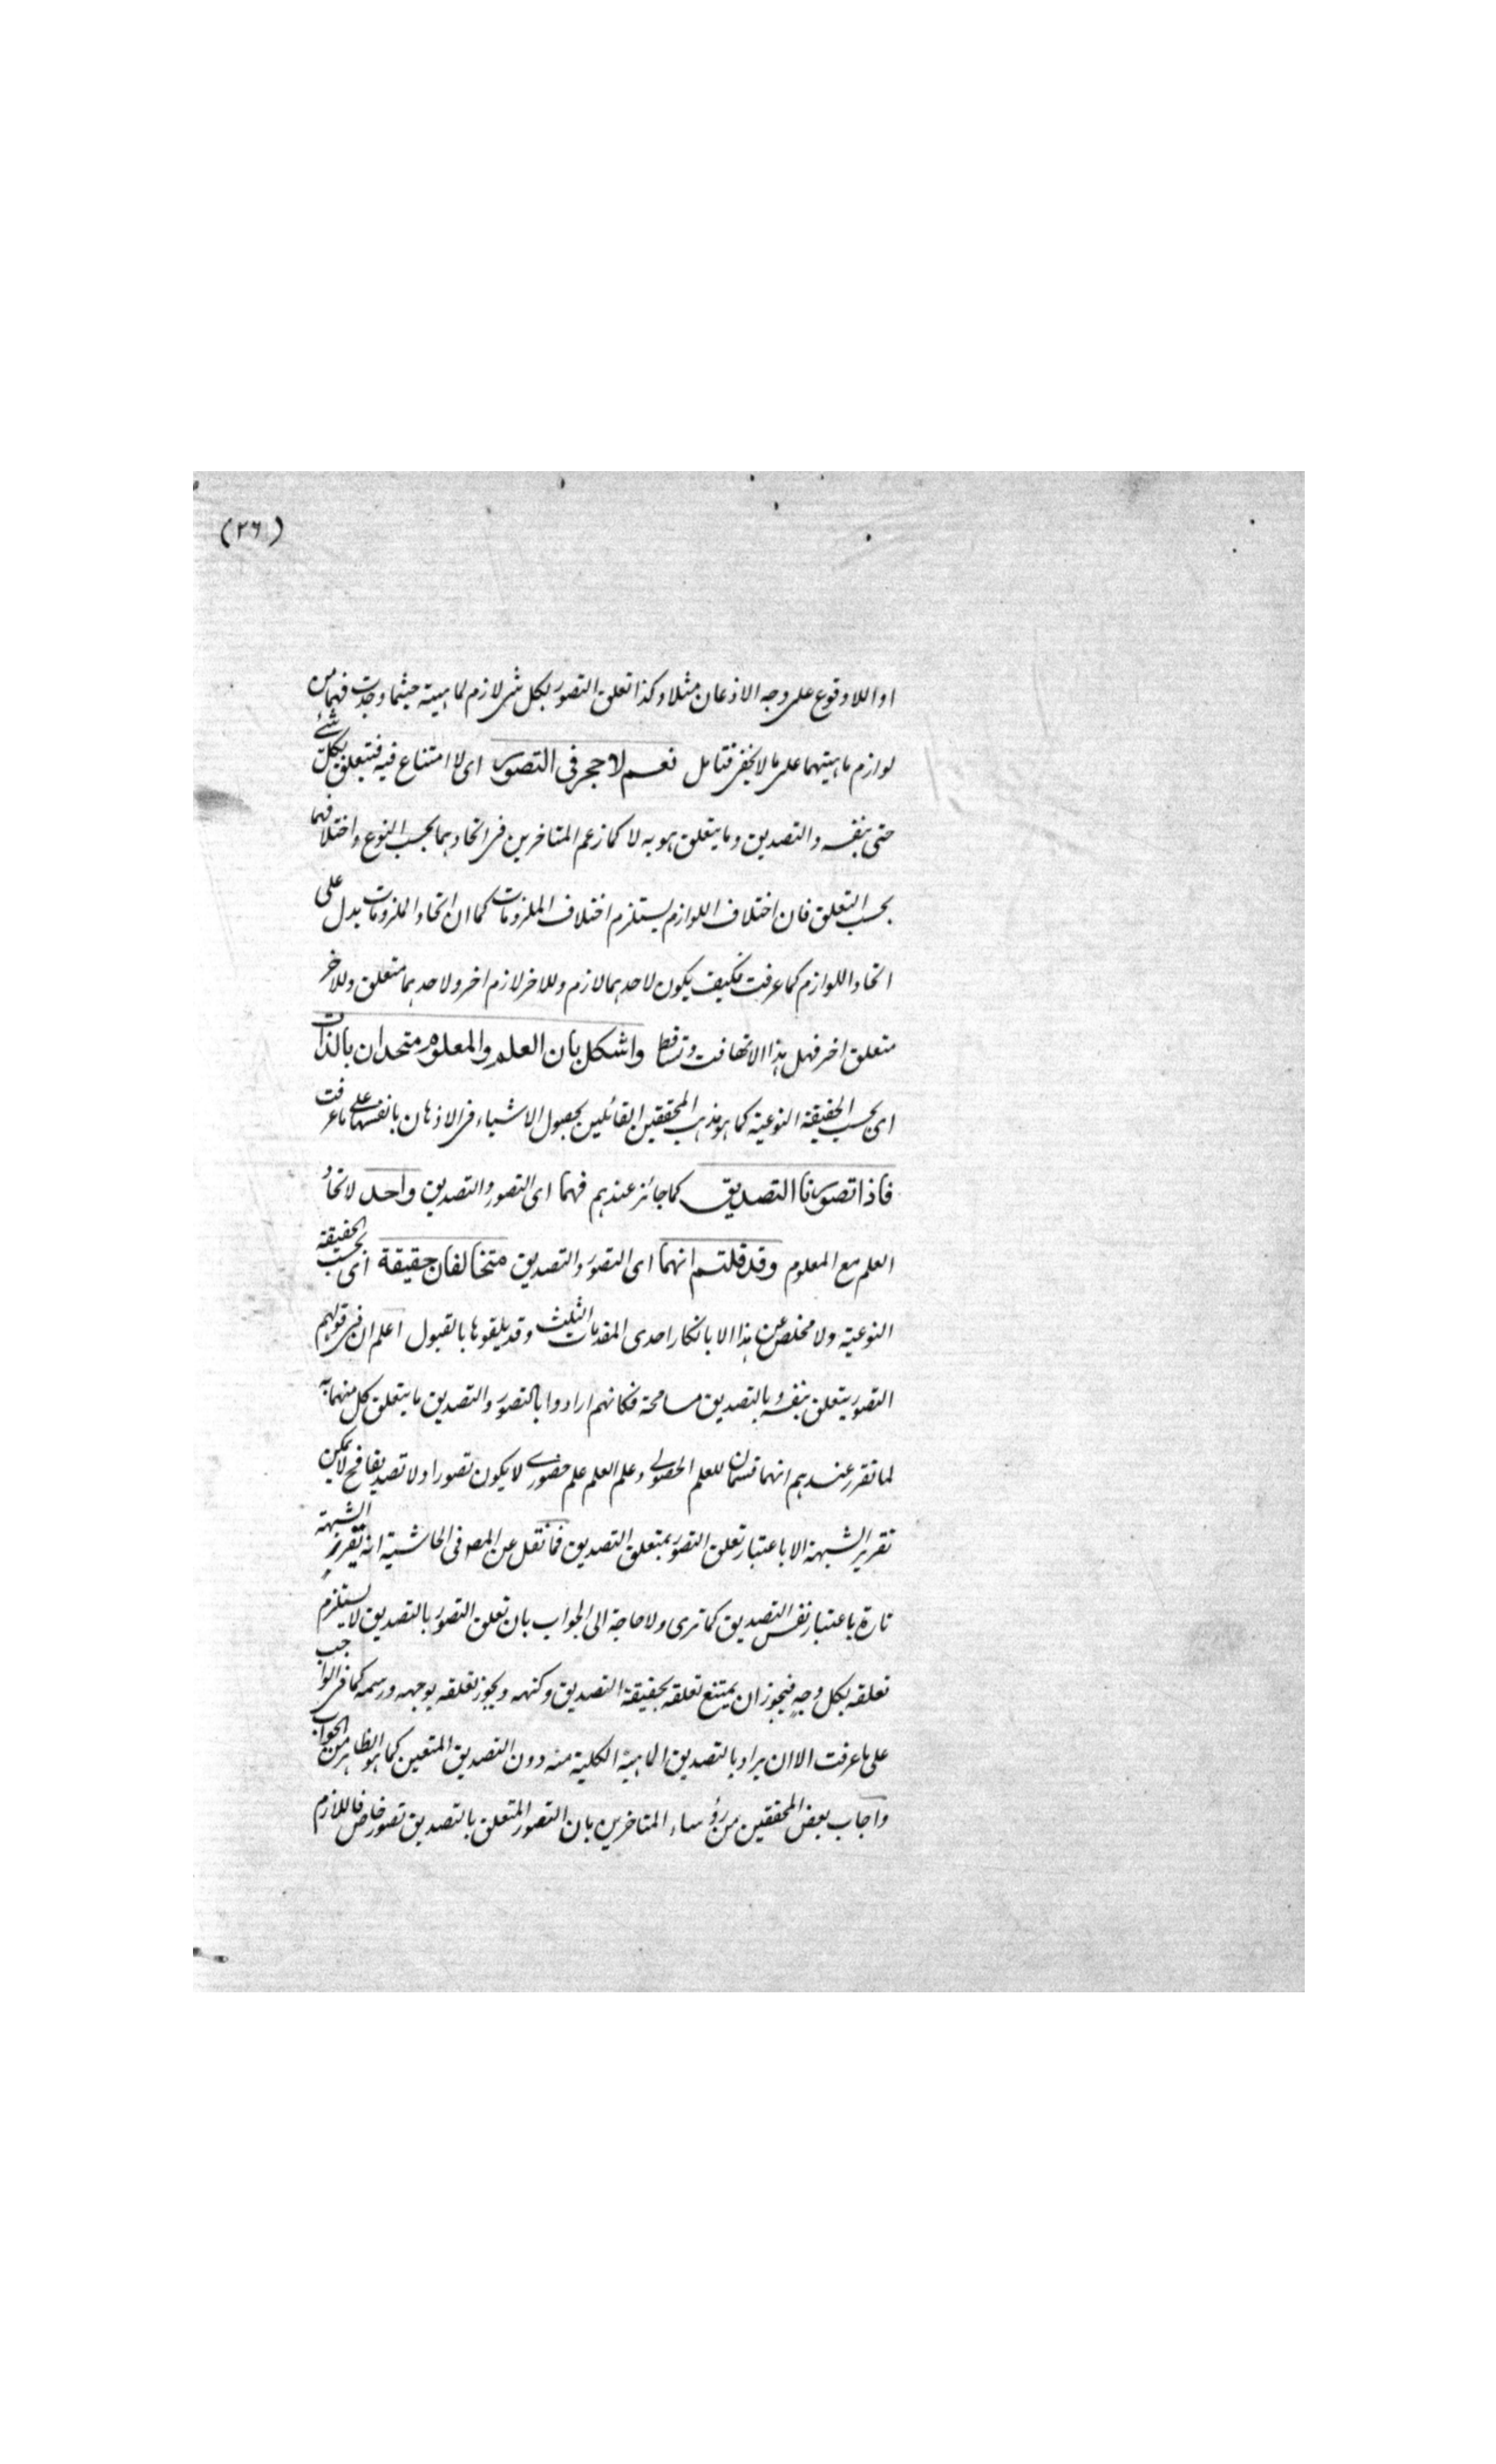 (٢٦)
او اللاوقوع على وجه الاذعان مثلا وكذا تعلق التصور بكل شى لازم لماهيته حيثما وجدت فهما من
لوازم ماهيتهما على ما لا يخفى فتامل نعم لا حجر فى التصور اى لا امتناع فيه فيتعلق بكل شئ
حتى بنفسه والتصديق وما يتعلق هو به لا كما زعم المتاخرين فى اتحادهما بحسب النوع واختلافهما
بحسب التعلق فان اختلاف اللوازم يستلزم اختلاف الملزومات كما ان اتحاد الملزومات يدل على
اتحاد اللوازم كما عرفت فكيف يكون لاحدهما لازم وللاخر لازم اخر ولاحدهما متعلق وللاخر
متعلق اخر فهل هذا الا تهافت وتساقط واشكل بان العلم والمعلوم متحدان بالذات
اى بحسب الحقيقة النوعية كما هو مذهب المحققين القائلين بحصول الاشياء فى الاذهان بانفسها على ما عرفت
فاذا تصورنا التصديق كما جائز عندهم فهما اى التصور والتصديق واحد لاتحاد
العلم مع المعلوم وقد قلتم انهما اى التصور والتصديق متخالفان حقيقة اى بحسب الحقيقة
النوعية ولا مخلص عن هذا الا بانكار احدى المقدمات الثلث وقد يلقوها بالقبول اعلم ان فى قولهم
التصور يتعلق بنفسه وبالتصديق مسامحة فكانهم ارادوا بالتصور والتصديق ما يتعلق كل منهما به
لما تقرر عندهم انهما قسمان للعلم الحصولى وعلم العلم علم حضورى لا يكون تصورا ولا تصديقا فح لا يمكن
تقرير الشبهة الا باعتبار تعلق التصور بمتعلق التصديق فما نقل عن المص فى الحاشية انه تقرير الشبهة
تارة باعتبار نفس التصديق كما ترى ولا حاجة الى الجواب بان تعلق التصور بالتصديق لا يستلزم
تعلقه بكل وجه فيجوز ان يمتنع تعلقه بحقيقة التصديق وكنهه ويجوز تعلقه بوجهه ورسمه كما فى الواجب
على ما عرفت الا ان يراد بالتصديق الماهية الكلية منه دون التصديق المتعين كما هو الظاهر من الجواب
واجاب بعض المحققين من رؤساء المتاخرين بان التصور المتعلق بالتصديق تصور خاص فاللازم